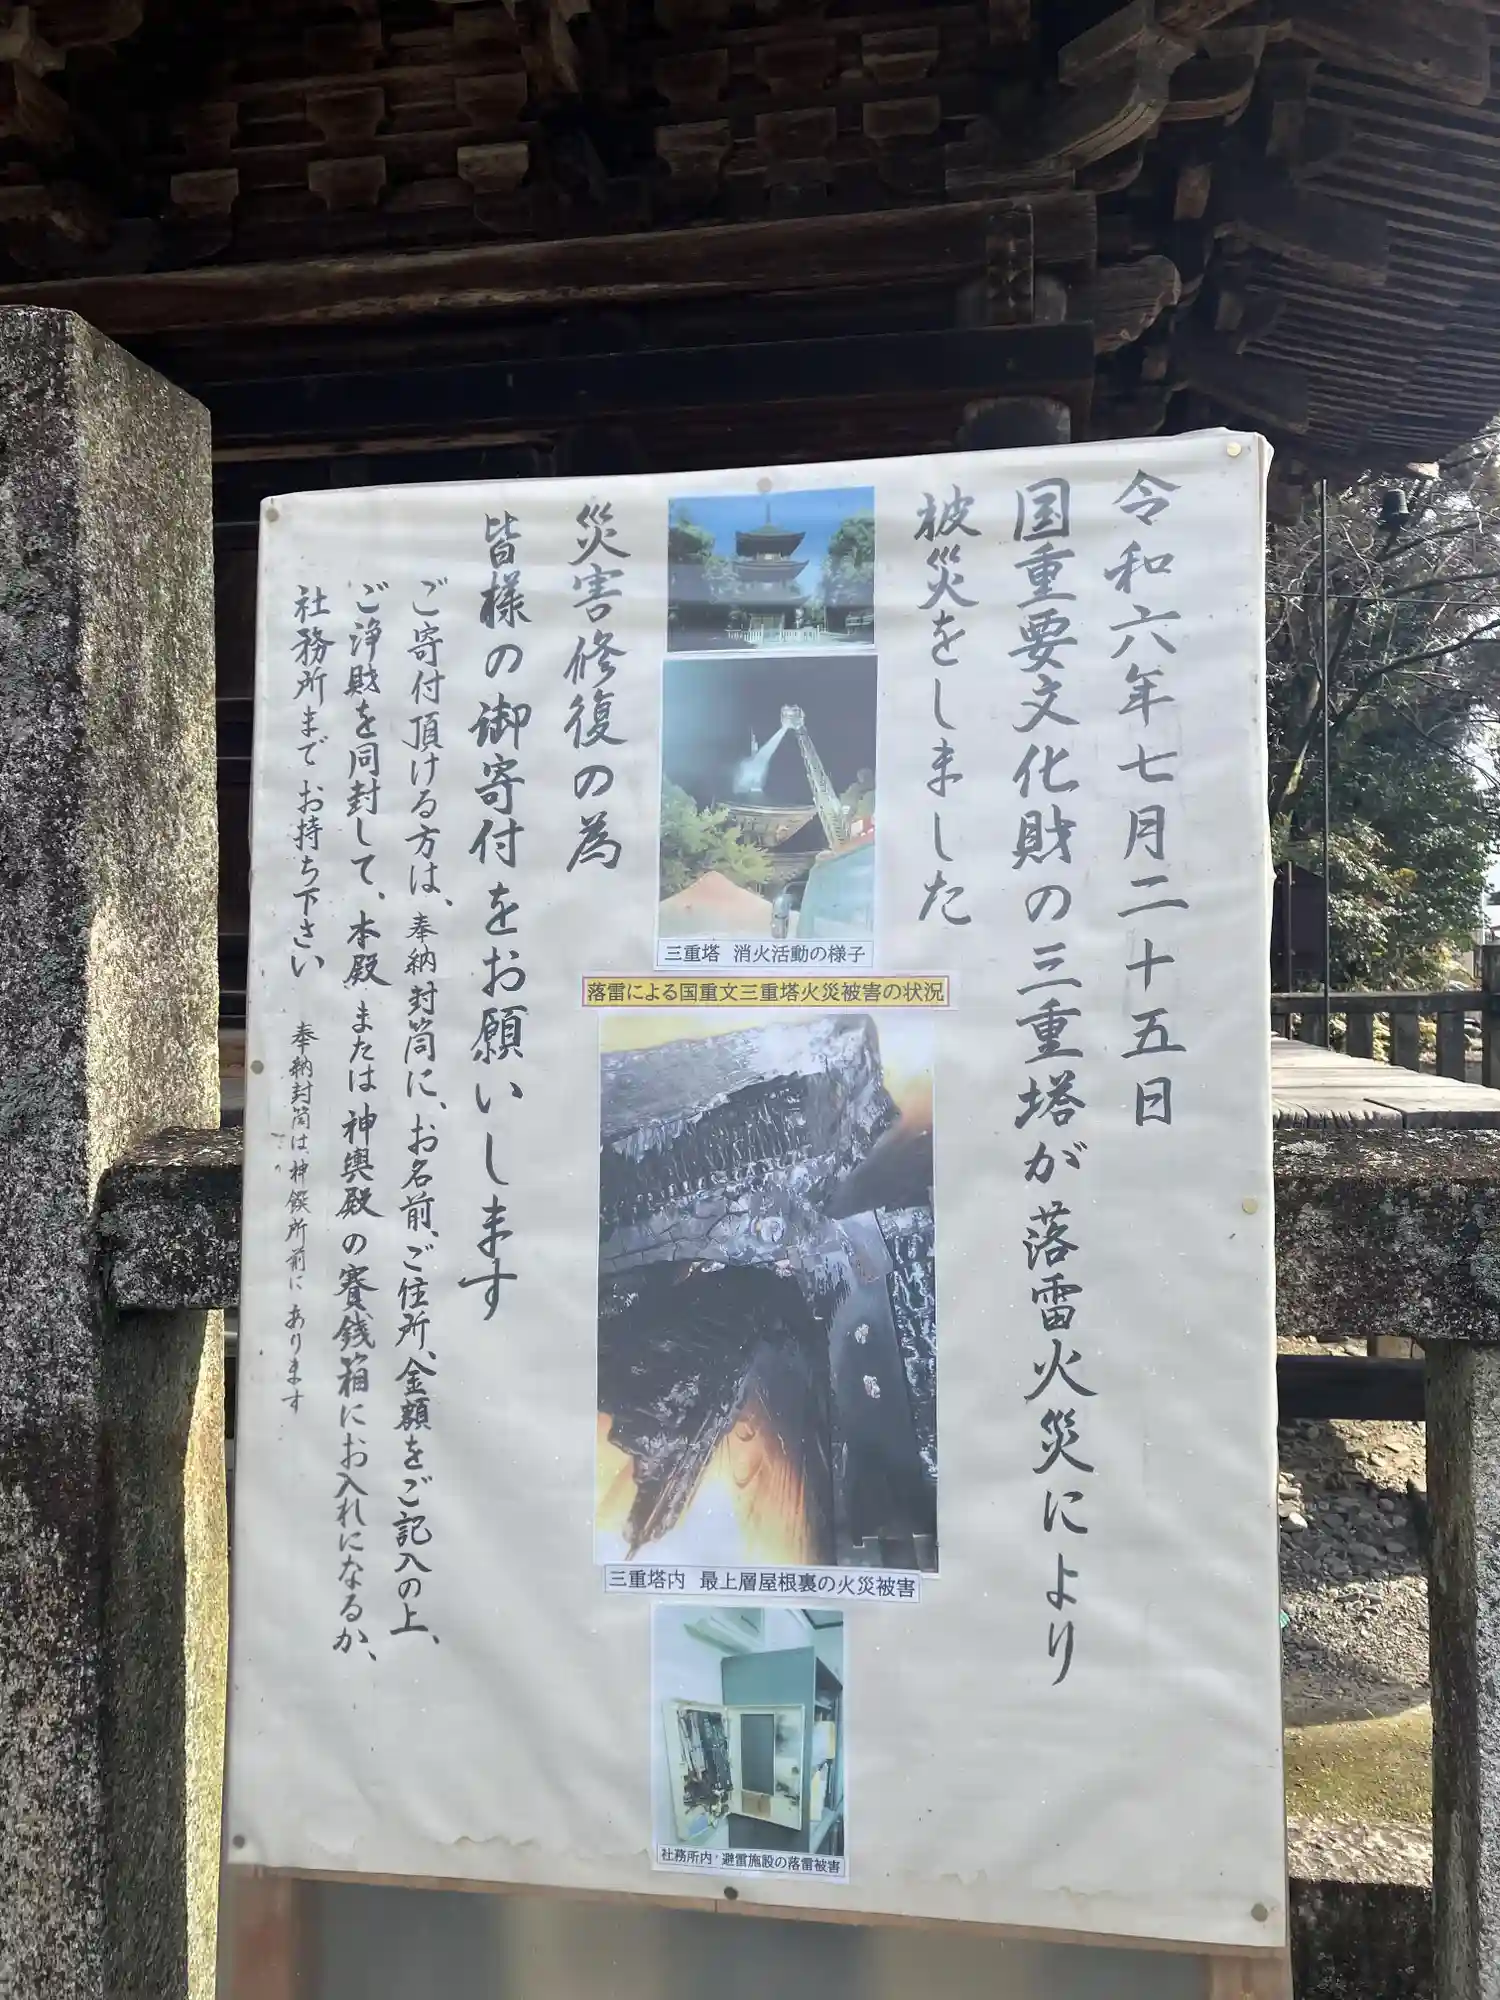 令和六年七月二十五日
国重要文化財の三重塔が落雷火災により
被災をしました
三重塔 消火活動の様子
落雷による国重文三重塔火災被害の状況
三重塔内 最上層屋根裏の火災被害
社務所内・避雷施設の落雷被害
災害修復の為
皆様の御寄付をお願いします
ご寄付頂ける方は、奉納封筒に、お名前、ご住所、金額をご記入の上、
ご浄財を同封して、本殿または神輿殿の賽銭箱にお入れになるか、
社務所までお持ち下さい 奉納封筒は神饌所前にあります